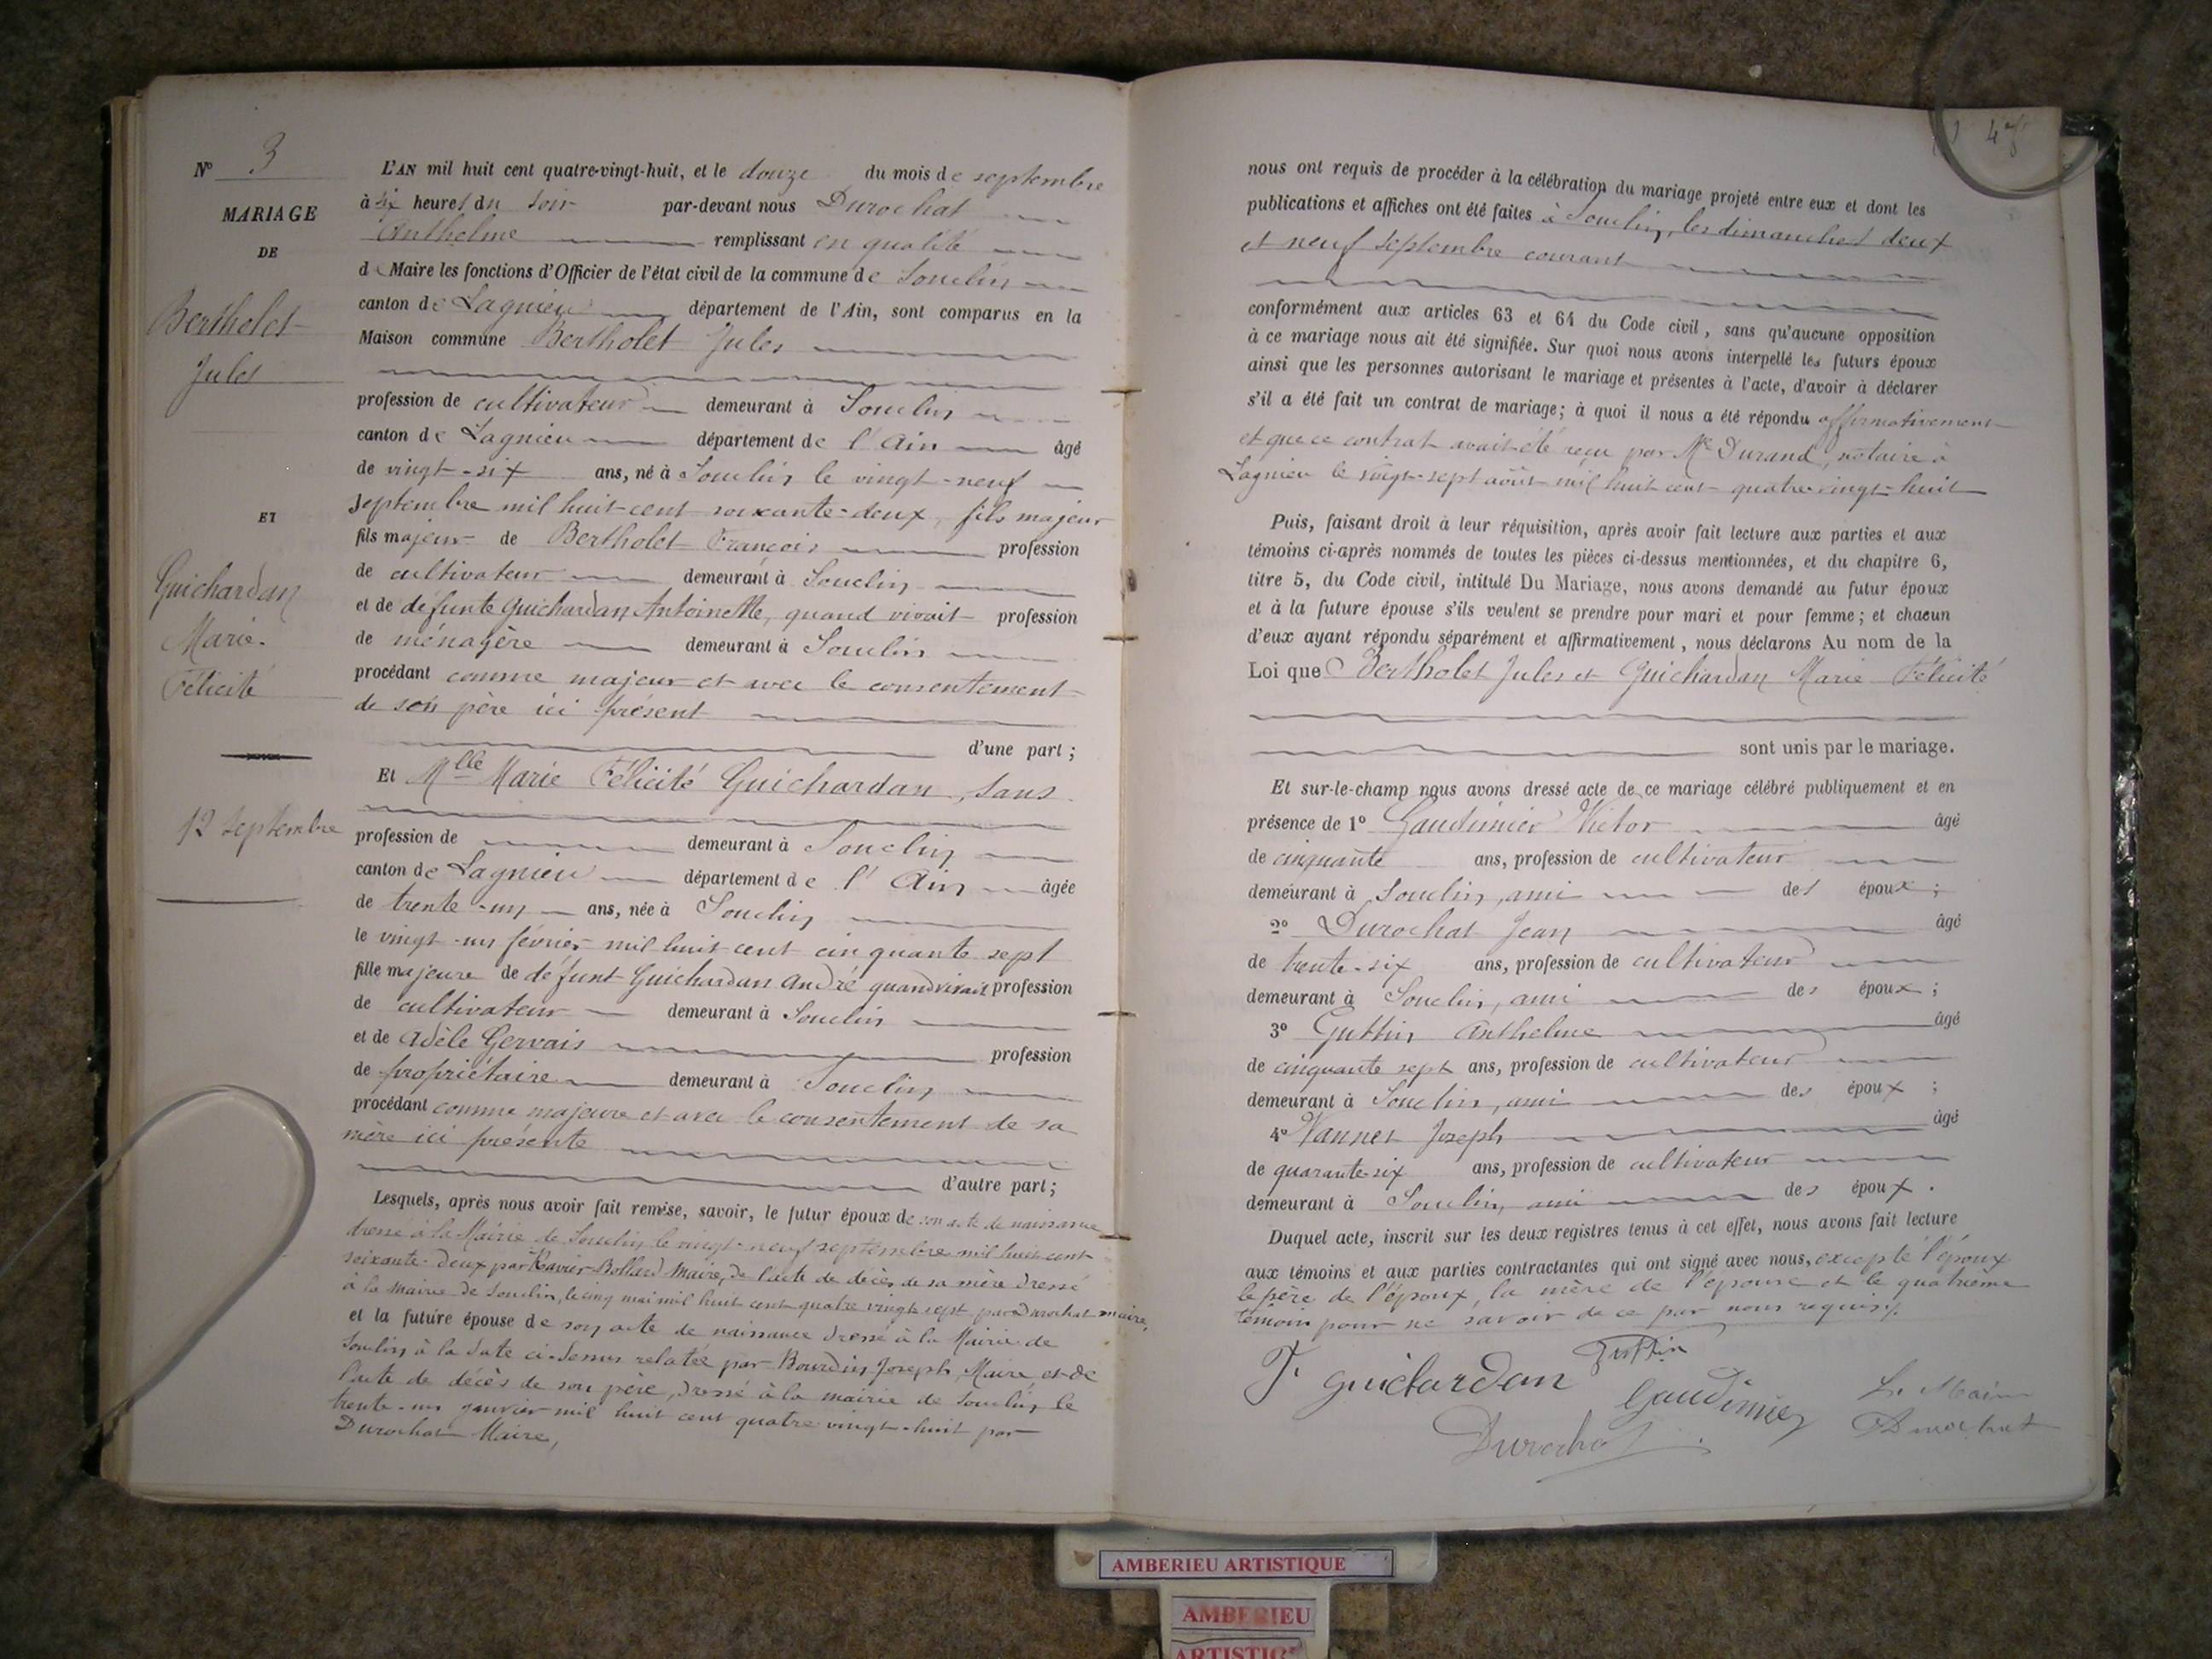 N° 3
MARIAGE
DE
Bertholet
Jules
ET
Guichardan
Marie.
Félicité
12 septembre
L'AN mil huit cent quatre-vingt-huit, et le douze du mois de septembre
à six heures du soir par-devant nous Durochat
Anthelme remplissant en qualité
de Maire les fonctions d'Officier de l'état civil de la commune de Souclin
canton de Lagnieu département de l'Ain, sont comparus en la
Maison commune Bertholet Jules
profession de cultivateur demeurant à Souclin
canton de Lagnieu département de l'Ain âgé
de vingt-six ans, né à Souclin le vingt-neuf
septembre mil huit cent soixante-deux, fils majeur
fils majeur de Bertholet François profession
de cultivateur demeurant à Souclin
et de défunte Guichardan Antoinette, quand vivait profession
de ménagère demeurant à Souclin
procédant comme majeur et avec le consentement
de son père ici présent
d'une part ;
Et Mlle Marie Félicité Guichardan, sans
profession de demeurant à Souclin
canton de Lagnieu département de l'Ain âgée
de trente-un ans, née à Souclin
le vingt-un février mil huit cent cinquante sept
fille majeure de défunt Guichardan André quand vivait profession
de cultivateur demeurant à Souclin
et de Adèle Gervais profession
de propriétaire demeurant à Souclin
procédant comme majeure et avec le consentement de sa
mère ici présente
d'autre part ;
Lesquels, après nous avoir fait remise, savoir, le futur époux de son acte de naissance
dressé à la Mairie de Souclin le vingt-neuf septembre mil huit cent
soixante-deux par Xavier Bollard Maire, de l'acte de décès de sa mère dressé
à la Mairie de Souclin, le cinq mai mil huit cent quatre vingt sept par Durochat maire,
et la future épouse de son acte de naissance dressé à la Mairie de
Souclin à la date ci-dessus relatée par Bourdin Joseph, Maire, et de
l'acte de décès de son père, dressé à la mairie de Souclin le
trente-un janvier mil huit cent quatre vingt-huit par
Durochat Maire,
47
nous ont requis de procéder à la célébration du mariage projeté entre eux et dont les
publications et affiches ont été faites à Souclin, les dimanches deux
et neuf septembre courant
conformément aux articles 63 et 64 du Code civil, sans qu'aucune opposition
à ce mariage nous ait été signifiée. Sur quoi nous avons interpellé les futurs époux
ainsi que les personnes autorisant le mariage et présentes à l'acte, d'avoir à déclarer
s'il a été fait un contrat de mariage ; à quoi il nous a été répondu affirmativement
et que ce contrat avait été reçu par Me Durand, notaire à
Lagnieu le vingt-sept août mil huit cent quatre-vingt-huit
Puis, faisant droit à leur réquisition, après avoir fait lecture aux parties et aux
témoins ci-après nommés de toutes les pièces ci-dessus mentionnées, et du chapitre 6,
titre 5, du Code civil, intitulé Du Mariage, nous avons demandé au futur époux
et à la future épouse s'ils veulent se prendre pour mari et pour femme ; et chacun
d'eux ayant répondu séparément et affirmativement, nous déclarons Au nom de la
Loi que Bertholet Jules et Guichardan Marie Félicité
sont unis par le mariage.
Et sur-le-champ nous avons dressé acte de ce mariage célébré publiquement et en
présence de 1° Gaudimier Victor âgé
de cinquante ans, profession de cultivateur
demeurant à Souclin, ami des époux ;
2° Durochat Jean âgé
de trente-six ans, profession de cultivateur
demeurant à Souclin, ami des époux ;
3° Guttin Anthelme âgé
de cinquante sept ans, profession de cultivateur
demeurant à Souclin, ami des époux ;
4° Vannet Joseph âgé
de quarante-six ans, profession de cultivateur
demeurant à Souclin, ami des époux.
Duquel acte, inscrit sur les deux registres tenus à cet effet, nous avons fait lecture
aux témoins et aux parties contractantes qui ont signé avec nous, excepté l'époux
le père de l'époux, la mère de l'épouse et le quatrième
témoin pour ne savoir de ce par nous requis.
F. guichardan Guttin
Gaudimier Le Maire
Durochat Durochat
AMBERIEU ARTISTIQUE
AMBERIEU
ARTISTIQ